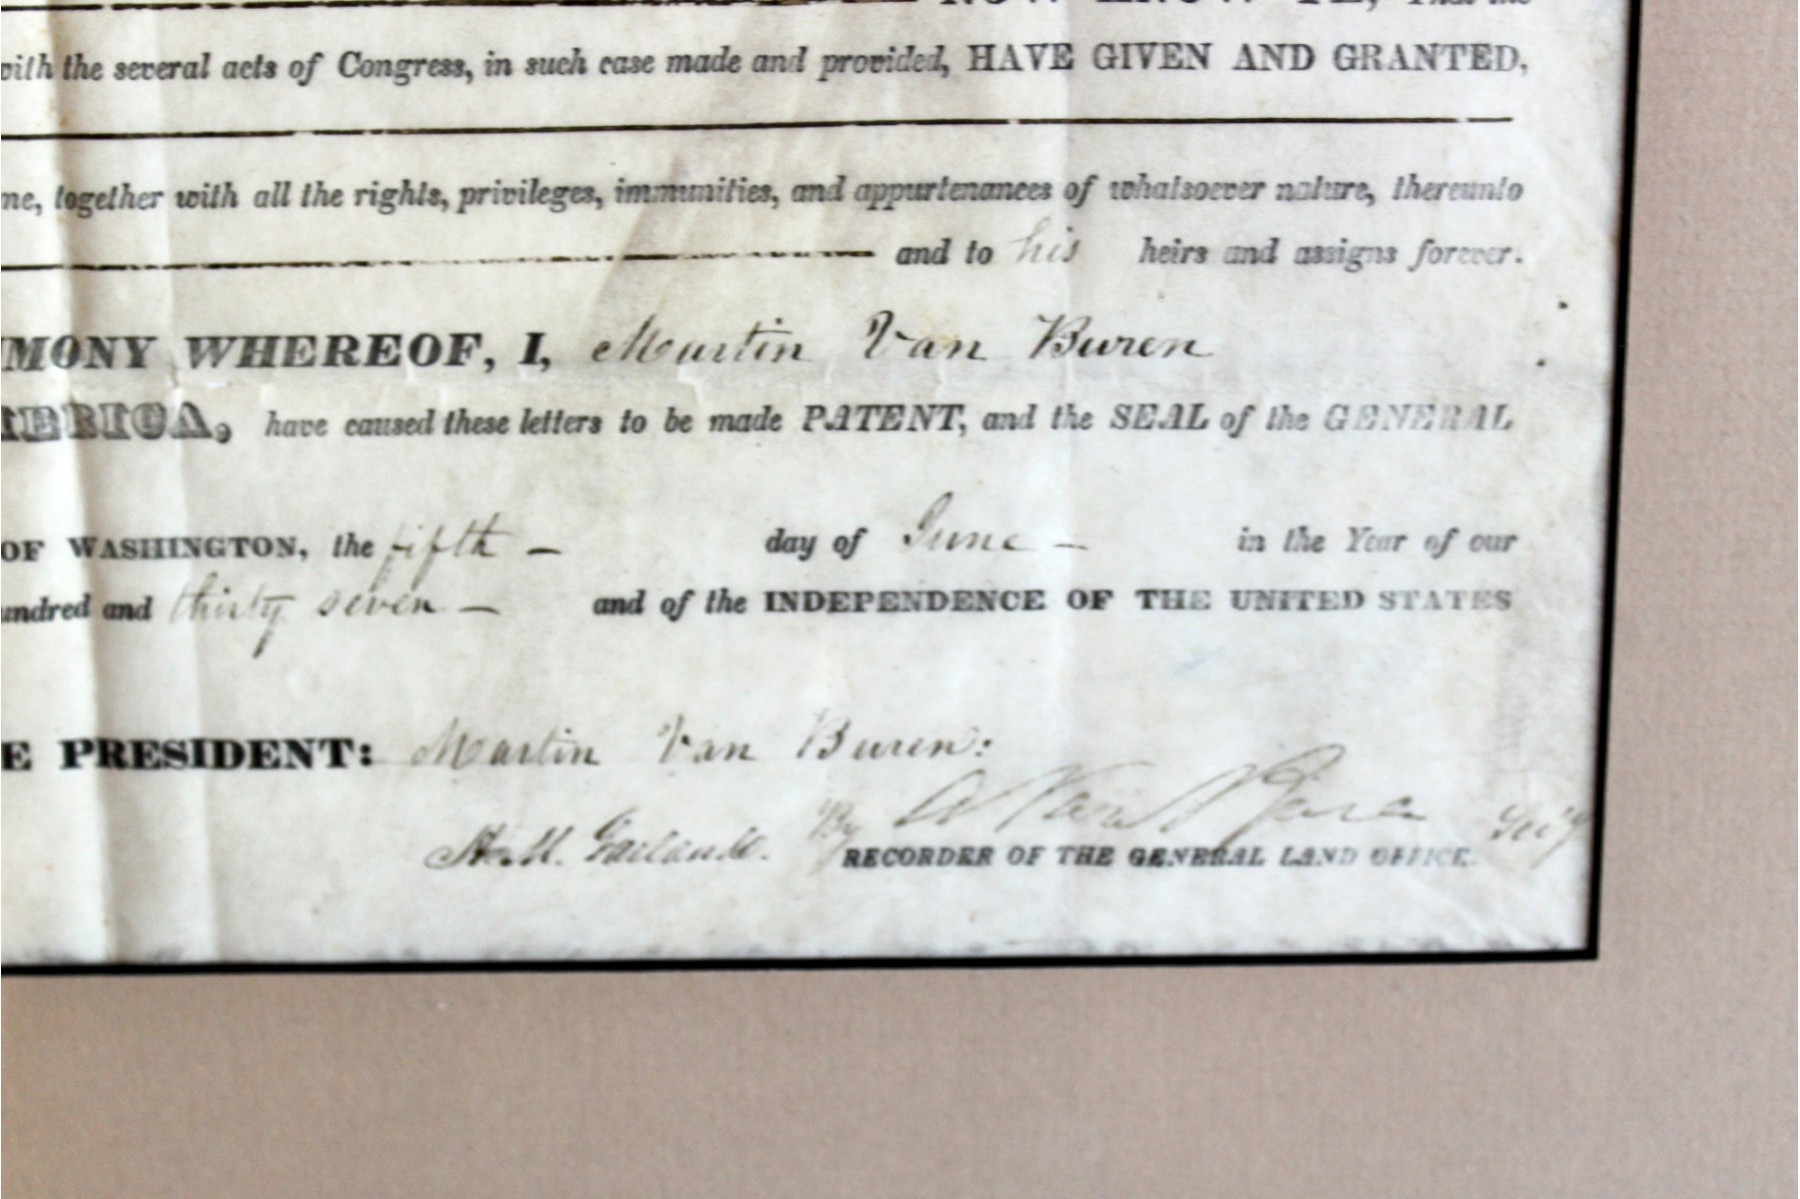 NOW KNOW YE, That the
with the several acts of Congress, in such case made and provided, HAVE GIVEN AND GRANTED,
me, together with all the rights, privileges, immunities, and appurtenances of whatsoever nature, thereunto
and to his heirs and assigns forever.
MONY WHEREOF, I, Martin Van Buren
ERICA, have caused these letters to be made PATENT, and the SEAL of the GENERAL
OF WASHINGTON, the fifth — day of June — in the Year of our
undred and thirty seven — and of the INDEPENDENCE OF THE UNITED STATES
E PRESIDENT: Martin Van Buren:
By A Van Buren Sec'y
H. M. Garland.
RECORDER OF THE GENERAL LAND OFFICE.